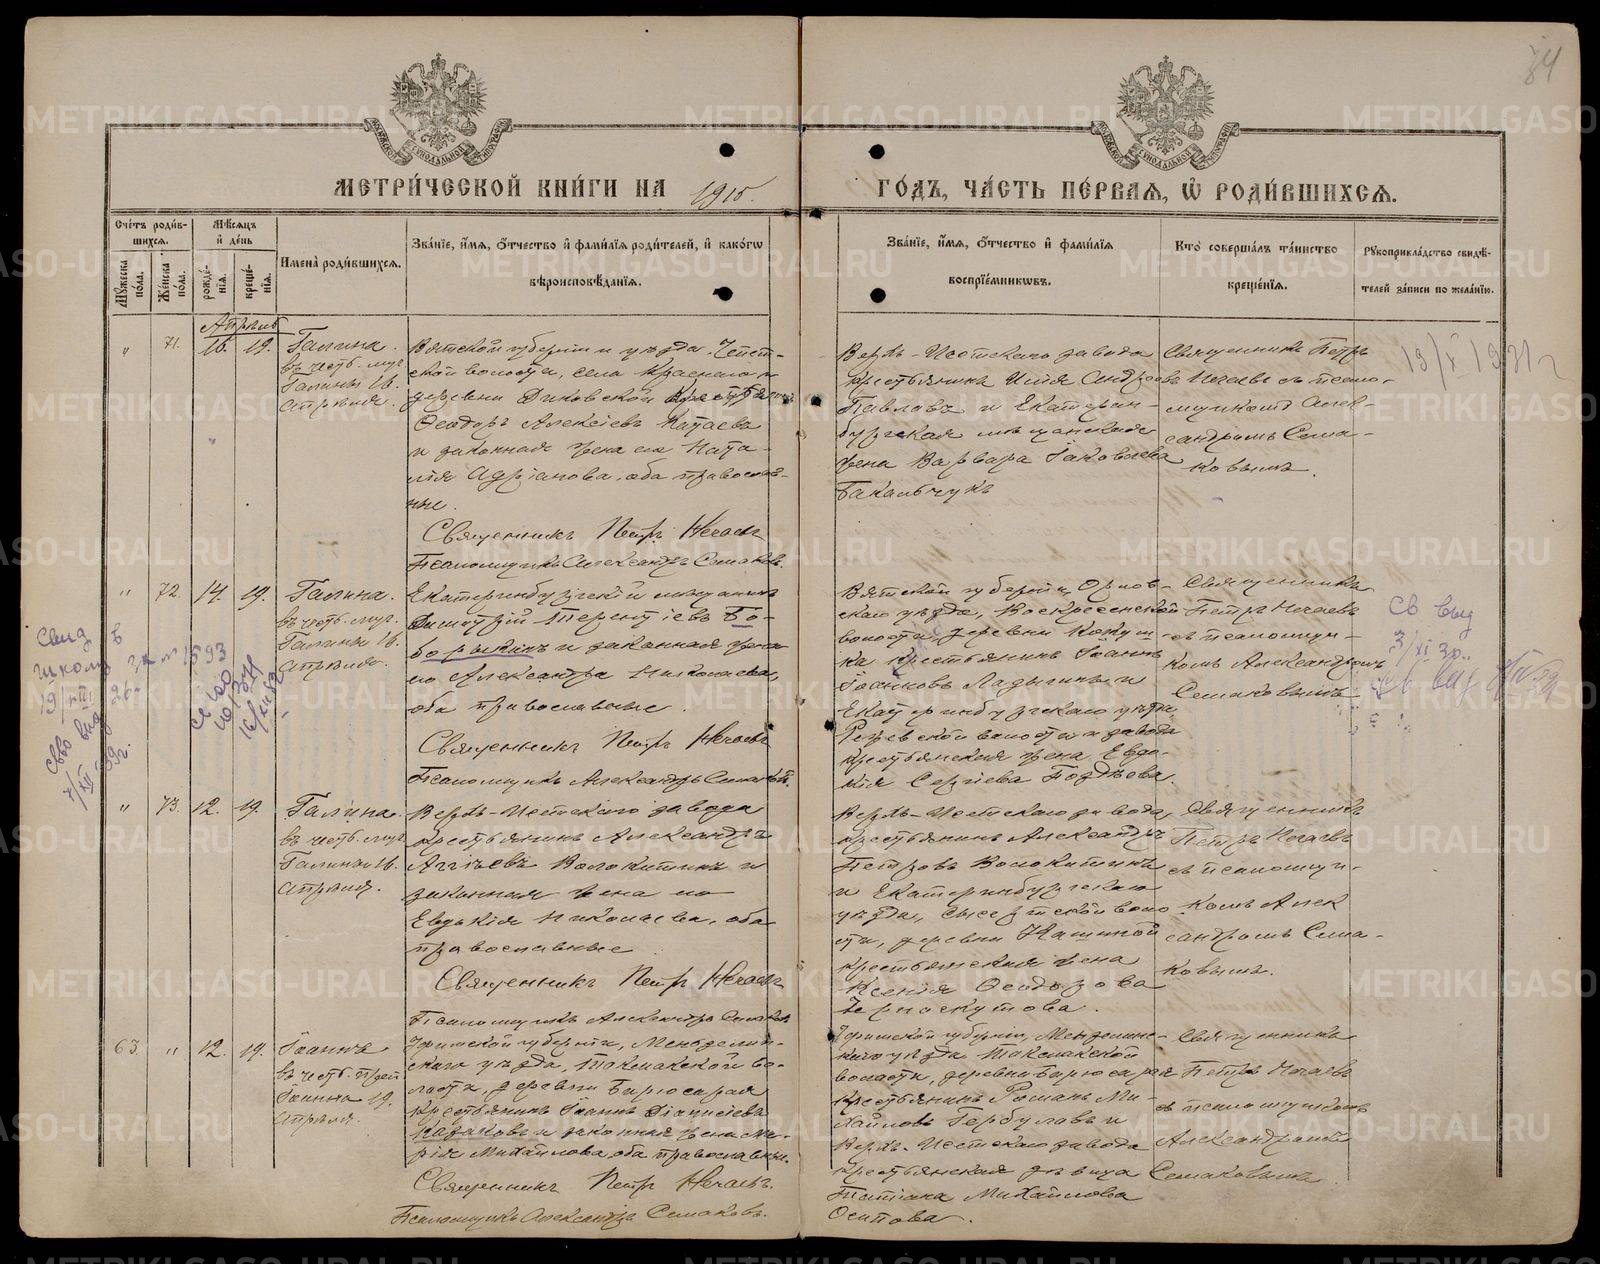 84
МЕТРИ́ЧЕСКОЙ КНИ́ГИ НА 1915
ГО́ДЪ, ЧА́СТЬ ПЕ́РВАЯ, Ѡ РОДИ́ВШИХСЯ.
Сче́тъ роди́в-
шихся.
Му́жеска по́ла.
Же́нска по́ла.
Мѣ́сяцъ
и҆ де́нь
рожде́-
нїя.
креще́-
нїя.
Имена̀ роди́вшихся.
Зва́нїе, и҆́мя, ѻ҆́тчество и҆ фами́лїя роди́телей, и҆ како́гѡ
вѣроисповѣ́данїя.
Зва́нїе, и҆́мя, ѻ҆́тчество и҆ фами́лїя
воспрїе́мникѡвъ.
Кто̀ соверша́лъ та́инство
креще́нїя.
Рꙋкоприкла́дство свидѣ́-
телей за́писи по жела́нїю.
Апрѣль
" 71. 16. 19.
Галина.
въ честь муч.
Галины 16.
Апрѣля.
Вятской губерніи и уѣзда, Чепет-
ской волости, села Краснаго и
деревни Диковской
Ѳеодоръ Алексіевъ Катаевъ
и законная жена его Ната-
лія Адріанова, оба православ-
ные.
Священникъ Петръ Нечаевъ
Псаломщикъ Александръ Семаковъ.
Верхъ-Исетскаго завода
крестьянинъ Илія Андреевъ
Павловъ и Екатерин-
бургская мѣщанская
жена Варвара Іаковлева
Бакальчукъ
Священникъ Петръ
Нечаевъ съ псало-
мщикомъ Алек-
сандромъ Сема-
ковымъ.
19/X 1931 г
" 72. 14. 19.
Галина.
въ честь муч.
Галины 16.
Апрѣля.
Екатеринбургскій мѣщанинъ
Димитрій Терентіевъ Бо-
борыкинъ и законная жена
его Александра Николаева,
оба православные.
Священникъ Петръ Нечаевъ
Псаломщикъ Александръ Семаковъ.
Вятской губерніи, Орлов-
скаго уѣзда, Воскресенской
волости, деревни
крестьянинъ Іоаннъ
Іоанновъ Ладыгинъ и
Екатеринбургскаго уѣзда
Режевской волости и завода
крестьянская жена Евдо-
кія Сергіева Бо
Священникъ
Петръ Нечаевъ
съ псаломщи-
комъ Александромъ
Семаковымъ.
Св выд
3/XI 30.
Св выд
" 73. 12. 19.
Галина.
въ честь муч.
Галины 16.
Апрѣля.
Верхъ-Исетскаго завода
крестьянинъ Александръ
Аггіевъ Волокитинъ и
законная жена его
Евдокія Николаева, оба
православные
Священникъ Петръ Нечаевъ
Псаломщикъ Александръ Семаковъ
Верхъ-Исетскаго завода,
крестьянинъ Александръ
Петровъ Волокитинъ
и Екатеринбургскаго
уѣзда, Сысертской воло
сти, деревни Кашиной
крестьянская жена
Ксенія Ѳеодорова
Черноскутова.
Священникъ
Петръ Нечаевъ
съ псаломщи-
комъ Алек
сандромъ Сема-
ковымъ.
63. " 12. 19.
Іоаннъ
въ честь преп
Іоанна 19.
Апрѣля.
Уфимской губерніи, Мензелин-
скаго уѣзда, Токмакской во-
лости, деревни
крестьянинъ Іоаннъ Діонисіевъ
Казаковъ и законная жена Ма-
рія Михайлова, оба православные.
Священникъ Петръ Нечаевъ.
Псаломщикъ Александръ Семаковъ.
Уфимской губерніи, Мензелинс-
каго уѣзда Токмакской
волости, деревни
крестьянинъ Романъ Ми-
хайловъ и
Верхъ-Исетскаго завода
крестьянская дѣвица
Татіана Михайлова
Осипова.
Священникъ
Петръ Нечаевъ
съ псаломщикомъ
Александромъ
Семаковымъ.